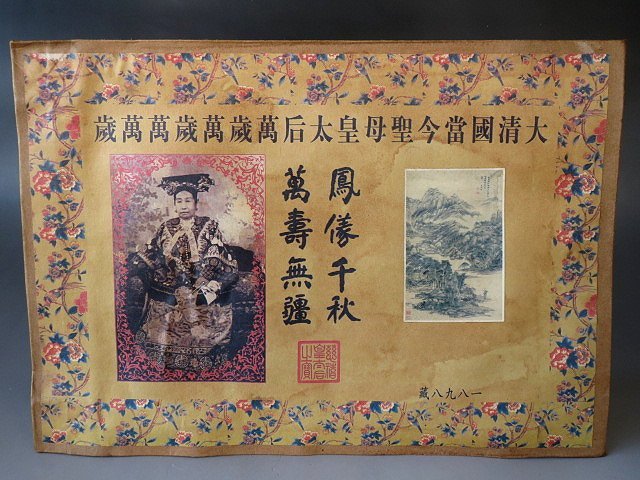 大清國當今聖母皇太后萬歲萬歲萬萬歲
鳳儀千秋
萬壽無疆
一八九八藏